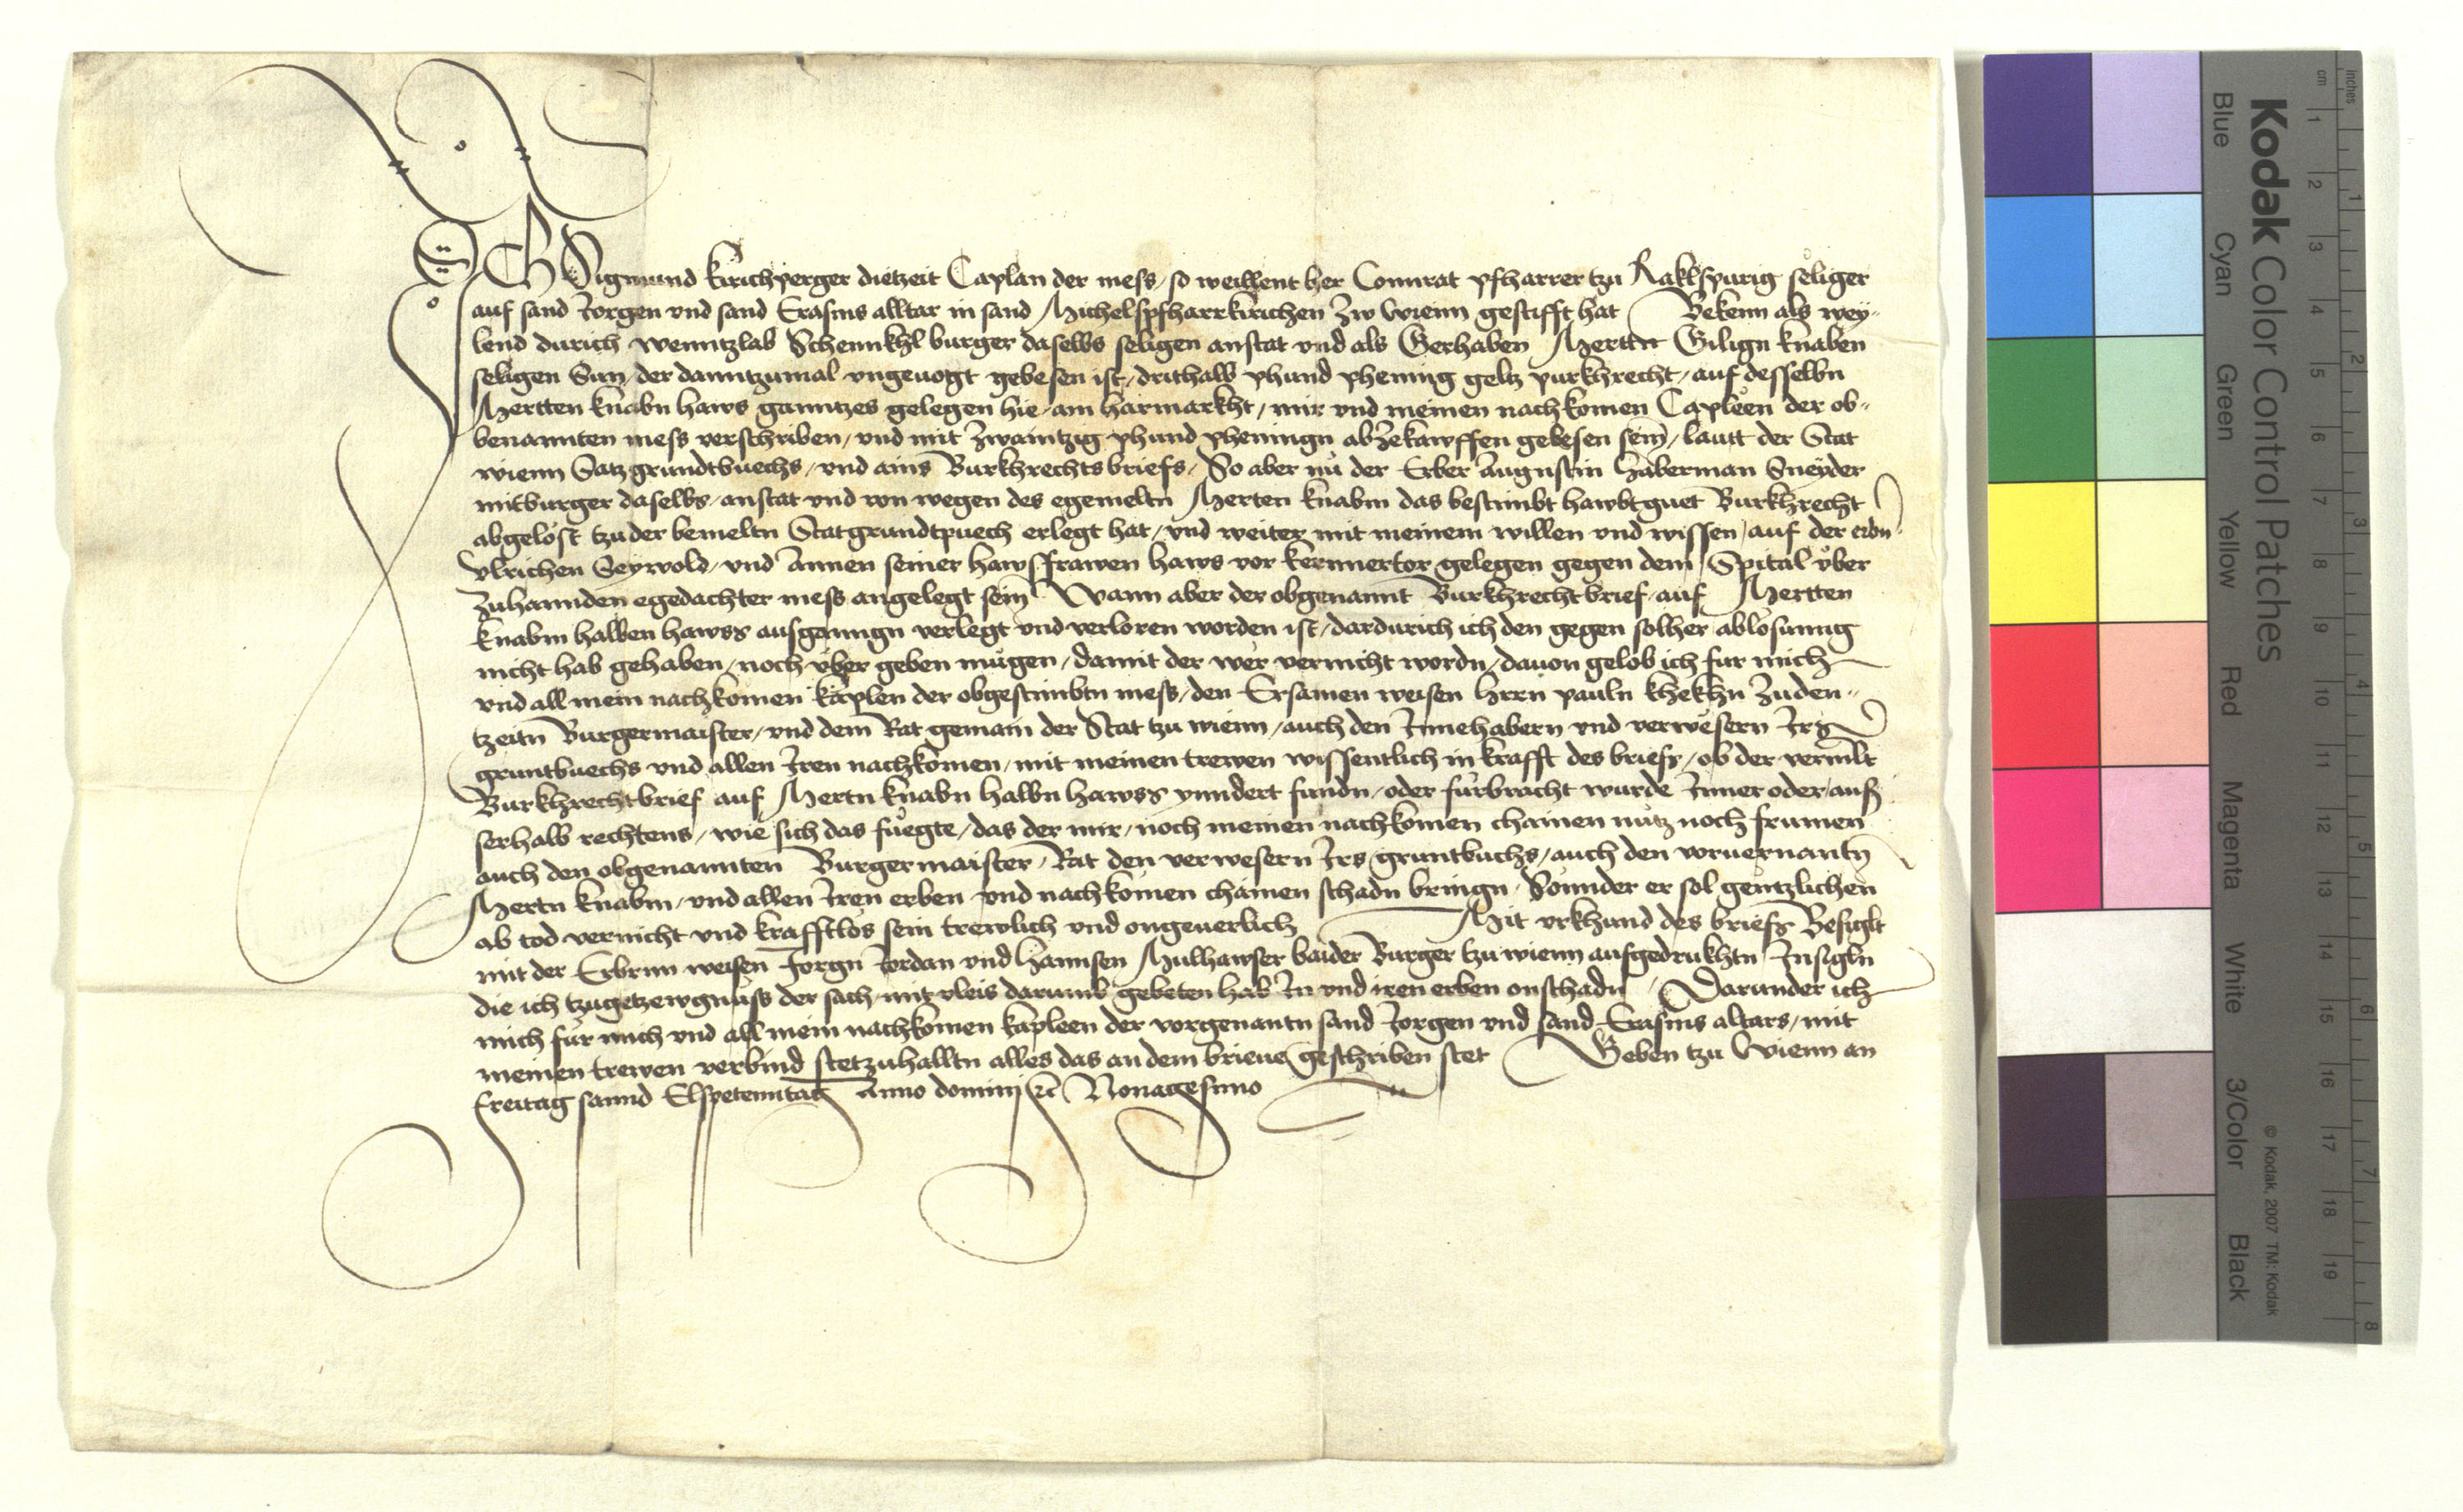 ICH Sigmund kirichperger dietzeit Caplan der mess / so weillent her Connrat pfharrer tzu Raklspurig seliger
auf sand Jorgen vnd sand Erasms alltar in sand Michelspfharrkirichen zw wienn gestifft hat Bekenn als wey-
lend durich wenntzlab Schennkhl burger daselbs seligen anstat vnd als Gerhaben Mertten Gilign knaben
seligen Sun / der danntzumal vngeuogt gebesen ist / drithalb phund phening geltz purkhrecht / auf desselbn
Mertten knabn haws ganntzes gelegen hie / am harmarkht / mir vnd meinen nachkomen Capleen der ob-
benannten mess verschriben / vnd mit zwaintzig phund pheningn abzekawffen gebesen sein / lautt der Stat
wienn Satzgrundtbuechs / vnd ains Burkhrechtsbriefs / So aber nu der Erber Augustin haberman Sneyder
mitburger daselbs / anstat vnd von wegen des egemeltn Merten knabm das bestimbt hawbtguet Burkhrecht
abgelöst tzu der bemeltn Statgrundtpuech erlegt hat / vnd weiter mit meinem willen vnd wissen / auf der erbn
vlrichen Seywold / vnd Annen seiner hawsfrawen haws vor kernnertor gelegen gegen dem Spital vber
zuhannden egedachter mess angelegt sein Wann aber der obgenannt Burkhrechtbrief auf Mertten
knabm halben hawss ausganngn verlegt vnd verloren worden ist / dardurich ich den gegen solher ablosunng
nicht hab gehaben / noch vber geben mugen / damit der wer vernicht wordn / dauon gelob ich fur mich
vnd all mein nachkomen kaplen der obgestimbtn mess / den Ersamen weisen hern pauln khekhn zu den-
tzeitn Burgermaister / vnd dem Rat gemain der Stat tzu wienn / auch den Innehabern vnd verwesern Irs
gruntbuechs vnd allen Iren nachkomen / mit meinen trewen wissentlich in krafft des briefs / ob der vermlt
Burkhrechtbrief auf Mertn knabn halbn hawss ynndert fundn / oder furbracht wurde Inner oder auss
serhalb rechtens / wie sich das fuegte / das der mir / noch meinen nachkomen chainen nutz noch frumen
auch den obgenannten Burgermaister / Rat den verwesern Irs gruntbuchs / auch den voruernantn
Mertn knabm / vnd allen Iren erben vnd nachkomen chainen schadn bringn / Sonnder er sol gentzlichen
ab tod vernicht vnd krafftlos sein trewlich vnd ongeuerlich Mit vrkhund des briefs Besiglt
mit der Erbrnn weisen Jorgn Jordan vnd Hannsen Mulhawser baider Burger tzu wienn aufgedrukhtn Insigln
die ich tzugetzewgnuss der sach / mit vleis darumb gebeten hab In vnd iren erben onschadn / Darunder ich
mich fur mich vnd all mein nachkomen kapleen der vorgenantn sand Jorgen vnd sand Erasms altars / mit
meinen trewen verbind stetzuhalltn alles das an dem brieue geschriben stet Geben tzu Wienn an
freitag sannd Elspetenntag Anno domini &c Nonagesimo
Kodak Color Control Patches
Blue Cyan Green Yellow Red Magenta White 3/Color Black
© Kodak, 2007 TM: Kodak
inches 1 2 3 4 5 6 7 8
cm 1 2 3 4 5 6 7 8 9 10 11 12 13 14 15 16 17 18 19